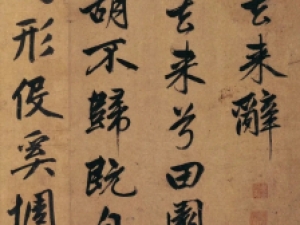 去来辭
去来兮田園
胡不歸既自
形役奚惆